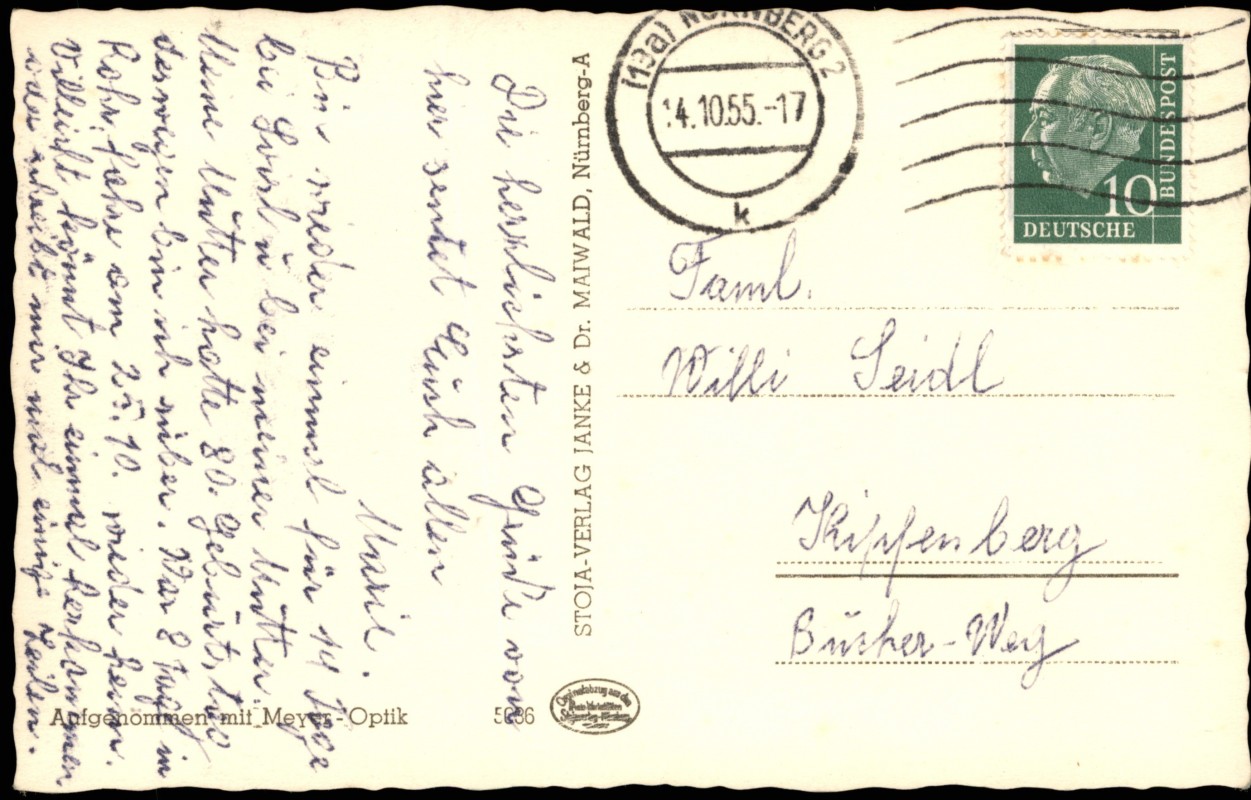 Die herzlichsten Grüße von
hier sendet Euch allen
Marie.
Bin wieder einmal für 14 Tage
bei Loisl u bei meiner Mutter.
Meine Mutter hatte 80. Geburtstag
deswegen bin ich rüber. War 8 Tag in
Rohr, fahre am 25.10. wieder heim.
Villeicht könnt Ihr einmal herkommen
oder schreibt mir mal einige Zeilen.
STOJA-VERLAG JANKE & Dr. MAIWALD, Nürnberg-A
(13a) NÜRNBERG 2
14.10.55.-17
k
10
DEUTSCHE
BUNDESPOST
Faml.
Willi Seidl
Kipfenberg
Bücher-Weg
Aufgenommen mit Meyer-Optik 5086